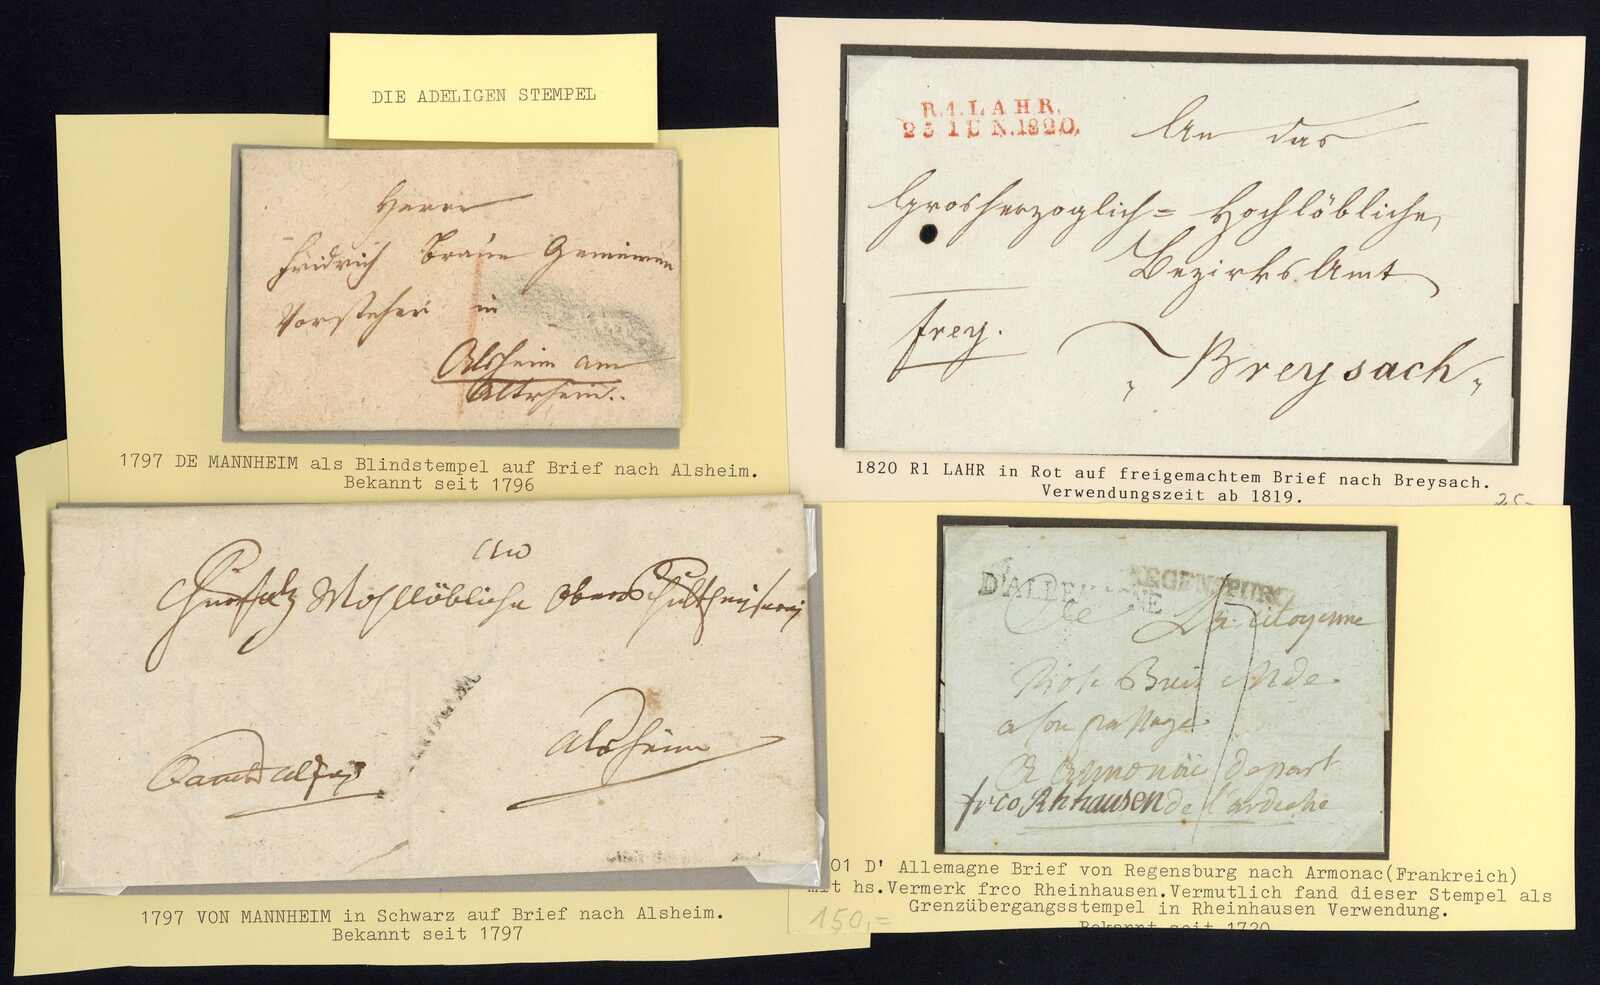 DIE ADELIGEN STEMPEL
Herrn
Fridrich Braun Gemeinen
Vorsteher in
Alsheim am
Altrhein..
1797 DE MANNHEIM als Blindstempel auf Brief nach Alsheim.
Bekannt seit 1796
R.1.LAHR.
25 IUN.1820.
An das
Grosherzoglich= Hochlöbliche
Bezirks Amt
frey.
Breysach
1820 R1 LAHR in Rot auf freigemachtem Brief nach Breysach.
Verwendungszeit ab 1819.
25-
Wohllöbliche
Alsheim
1797 VON MANNHEIM in Schwarz auf Brief nach Alsheim.
Bekannt seit 1797
D'ALLEMAGNE
REGENSPURG
La citoyenne
a son passage
a armonac depart
frco Rhhausen de l'ardeche
01 D' Allemagne Brief von Regensburg nach Armonac(Frankreich)
mit hs.Vermerk frco Rheinhausen.Vermutlich fand dieser Stempel als
Grenzübergangsstempel in Rheinhausen Verwendung.
Bekannt seit 1720
150,=